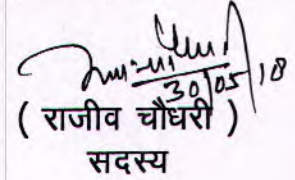 30/05/18
( राजीव चौधरी )
सदस्य